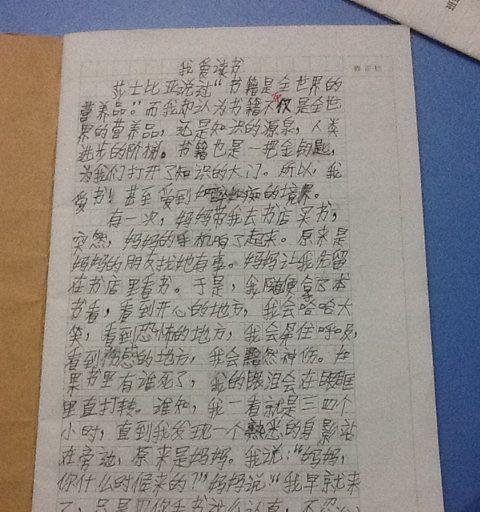 修正栏
我爱读书
莎士比亚说过“书籍是全世界的
营养品。”而我却认为书籍不仅是全世
界的营养品，还是知识的源泉，人类
进步的阶梯。书籍也是一把金钥匙，
为我们打开了知识的大门。所以，我
爱书！甚至爱到如痴的境界。
有一次，妈妈带我去书店买书，
突然，妈妈的手机响了起来。原来是
妈妈的朋友找她有事。妈妈让我先留
在书店里看书。于是，我随便拿了本
书看，看到开心的地方，我会哈哈大
笑，看到恐怖的地方，我会屏住呼吸，
看到伤感的地方，我会黯然神伤。如
果书里有谁死了，我的眼泪会在眼眶
里直打转。谁知，我一看就是三四个
小时，直到我发现一个熟悉的身影站
在旁边，原来是妈妈。我说：“妈妈，
你什么时候来的？”妈妈说“我早就来
了，只是见你看书这么认真，不忍心